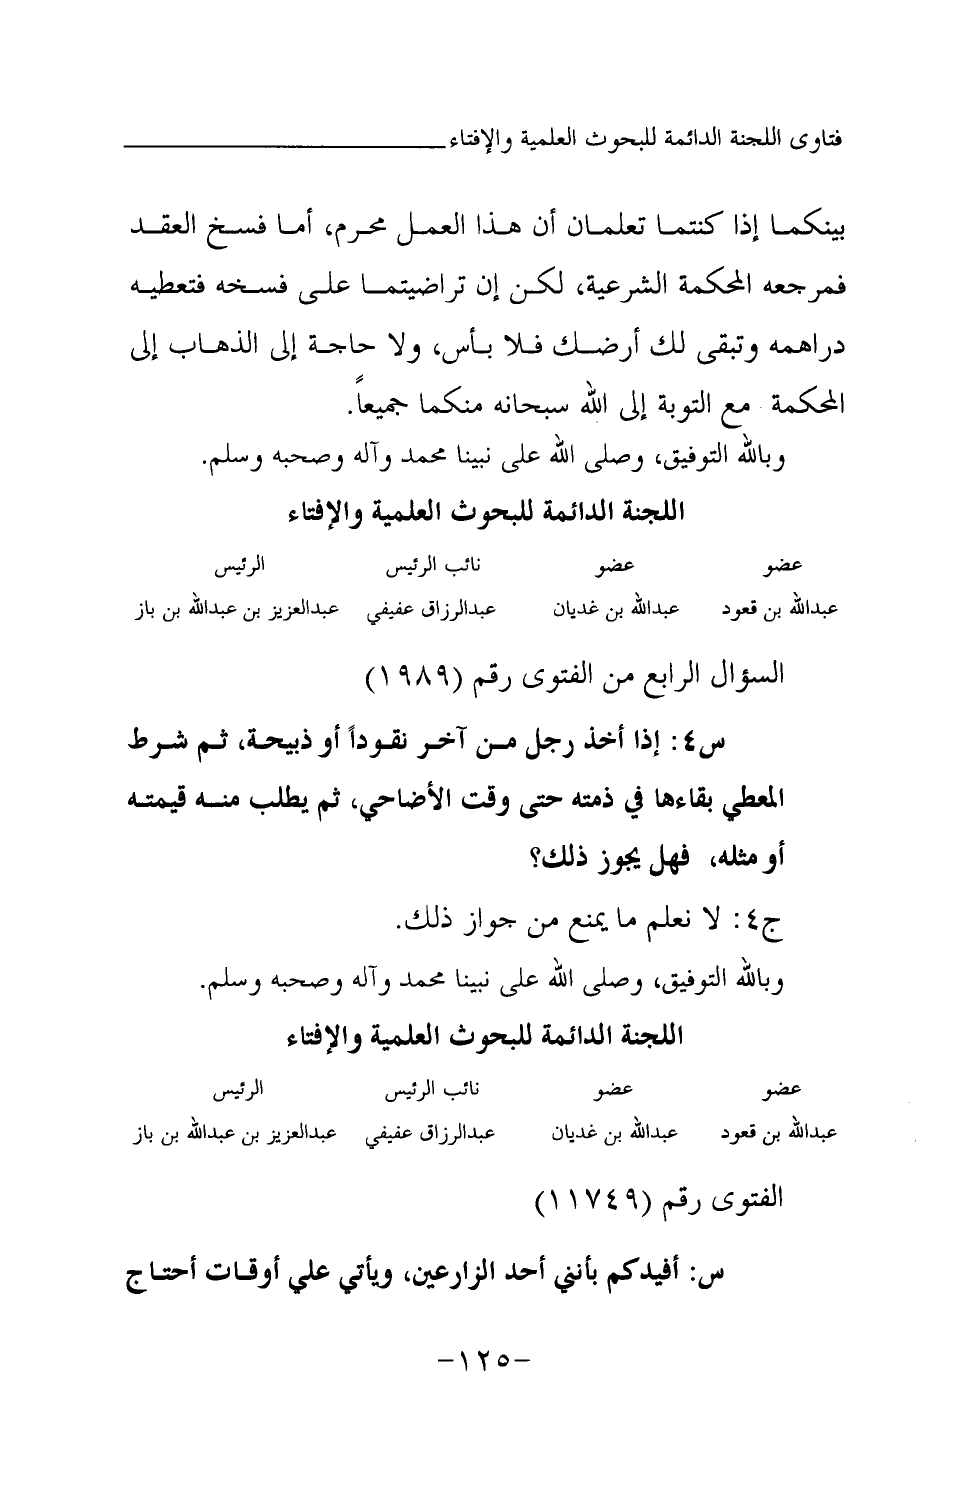 فتاوى اللجنة الدائمة للبحوث العلمية والإفتاء
بينكما إذا كنتما تعلمان أن هذا العمل محرم، أما فسخ العقد
فمرجعه المحكمة الشرعية، لكن إن تراضيتما على فسخه فتعطيه
دراهمه وتبقى لك أرضك فلا بأس، ولا حاجة إلى الذهاب إلى
المحكمة مع التوبة إلى الله سبحانه منكما جميعاً.
وبالله التوفيق، وصلى الله على نبينا محمد وآله وصحبه وسلم.
اللجنة الدائمة للبحوث العلمية والإفتاء
عضو عضو نائب الرئيس الرئيس
عبدالله بن قعود عبدالله بن غديان عبدالرزاق عفيفي عبدالعزيز بن عبدالله بن باز
السؤال الرابع من الفتوى رقم (١٩٨٩)
س٤: إذا أخذ رجل من آخر نقوداً أو ذبيحة، ثم شرط
المعطي بقاءها في ذمته حتى وقت الأضاحي، ثم يطلب منه قيمته
أو مثله، فهل يجوز ذلك؟
ج٤: لا نعلم ما يمنع من جواز ذلك.
وبالله التوفيق، وصلى الله على نبينا محمد وآله وصحبه وسلم.
اللجنة الدائمة للبحوث العلمية والإفتاء
عضو عضو نائب الرئيس الرئيس
عبدالله بن قعود عبدالله بن غديان عبدالرزاق عفيفي عبدالعزيز بن عبدالله بن باز
الفتوى رقم (١١٧٤٩)
س: أفيدكم بأنني أحد الزارعين، ويأتي علي أوقات أحتاج
-١٢٥-